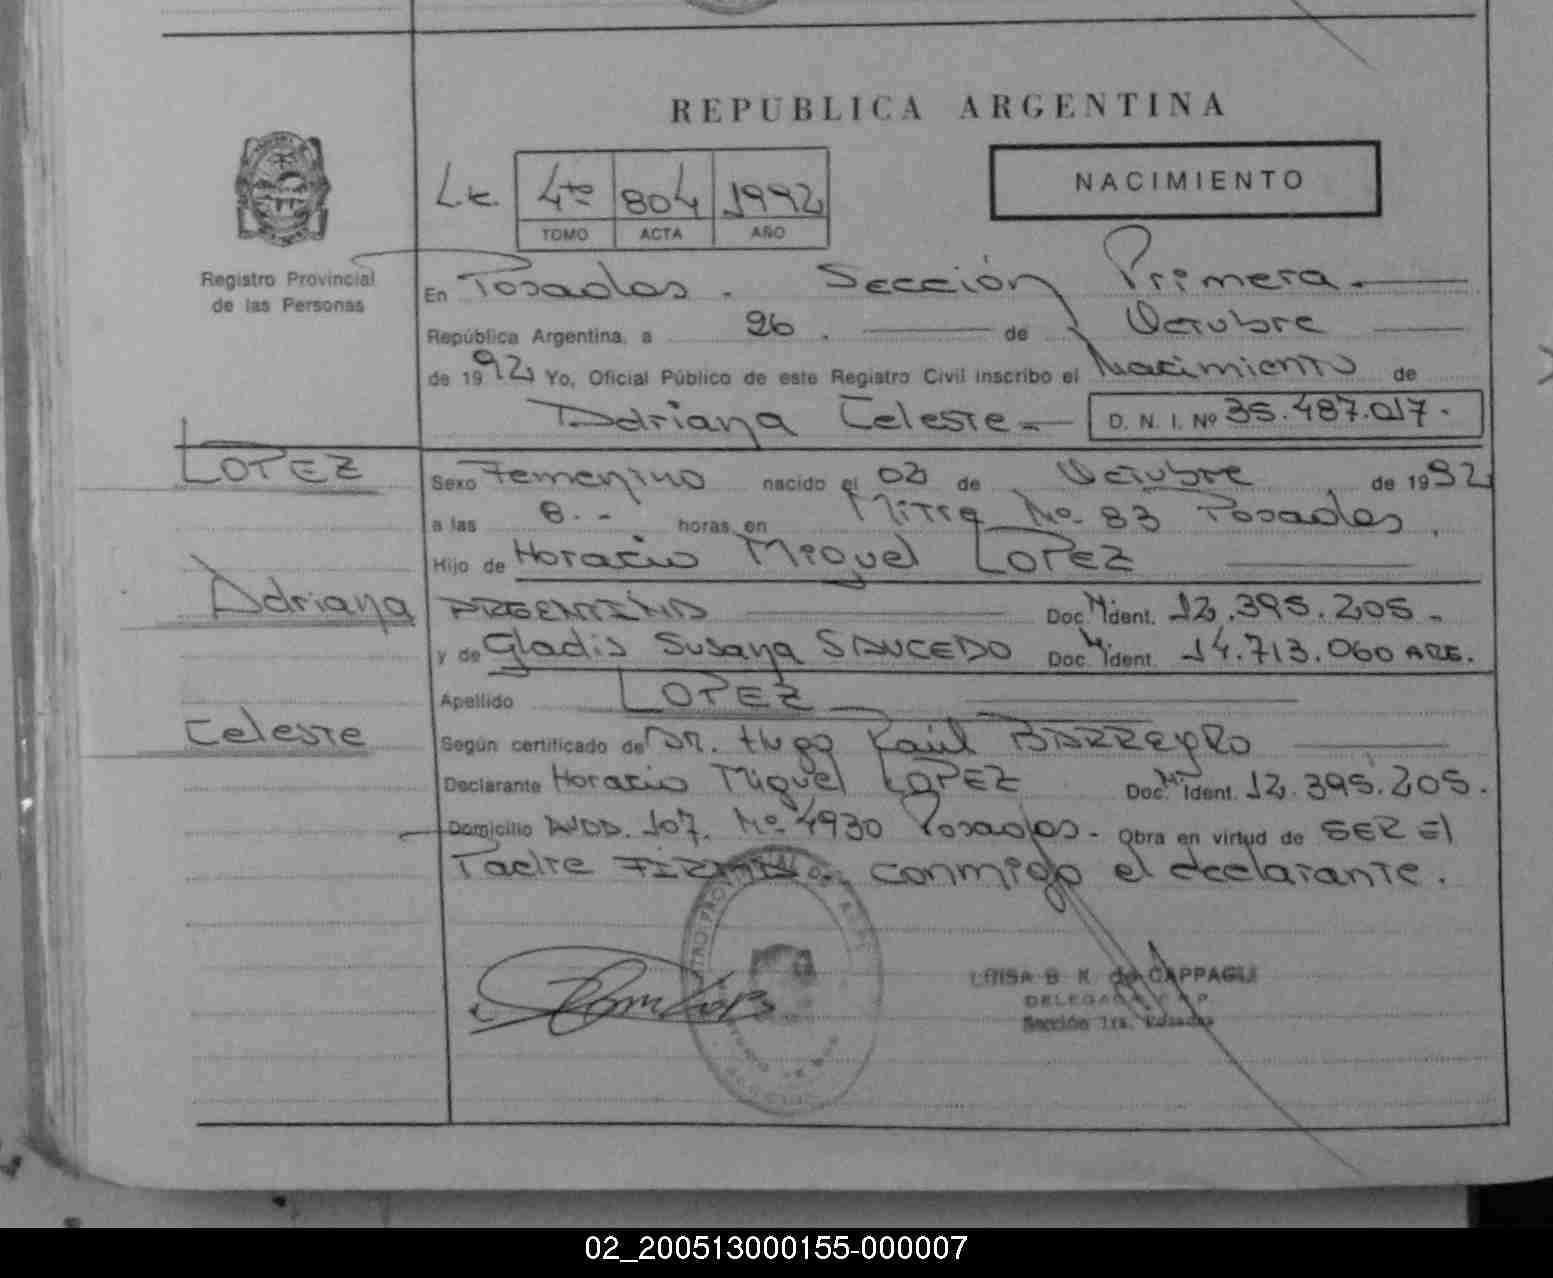 REPUBLICA ARGENTINA
Registro Provincial
de las Personas
L.c. 4to 804 1992
TOMO ACTA AÑO
NACIMIENTO
En Posadas. Sección Primera.
República Argentina, a 26. de Octubre
de 1992 Yo, Oficial Público de este Registro Civil inscribo el Nacimiento de
Adriana Celeste. D. N. I. Nº 35.487.017.
LOPEZ
Sexo Femenino nacido el 02 de Octubre de 1992
a las 8.- horas, en Mitre No. 83 Posadas.
Hijo de Horacio Miguel LOPEZ
Adriana
ARGENTINO Doc. M. Ident. 12.395.205.
y de Gladis Susana SAUCEDO Doc. M. Ident. 14.713.060 ARG.
Apellido LOPEZ
Celeste
Según certificado de Dr. Hugo Raúl BARREYRO
Declarante Horacio Miguel LOPEZ Doc. M. Ident. 12.395.205.
Domicilio AVDA. 107. No. 4930 Posadas. Obra en virtud de SER El
Padre FIRMA conmigo el declarante.
LUISA B. K. de CAPPAGLI
DELEGADA
Sección 1ra. Posadas
02_200513000155-000007